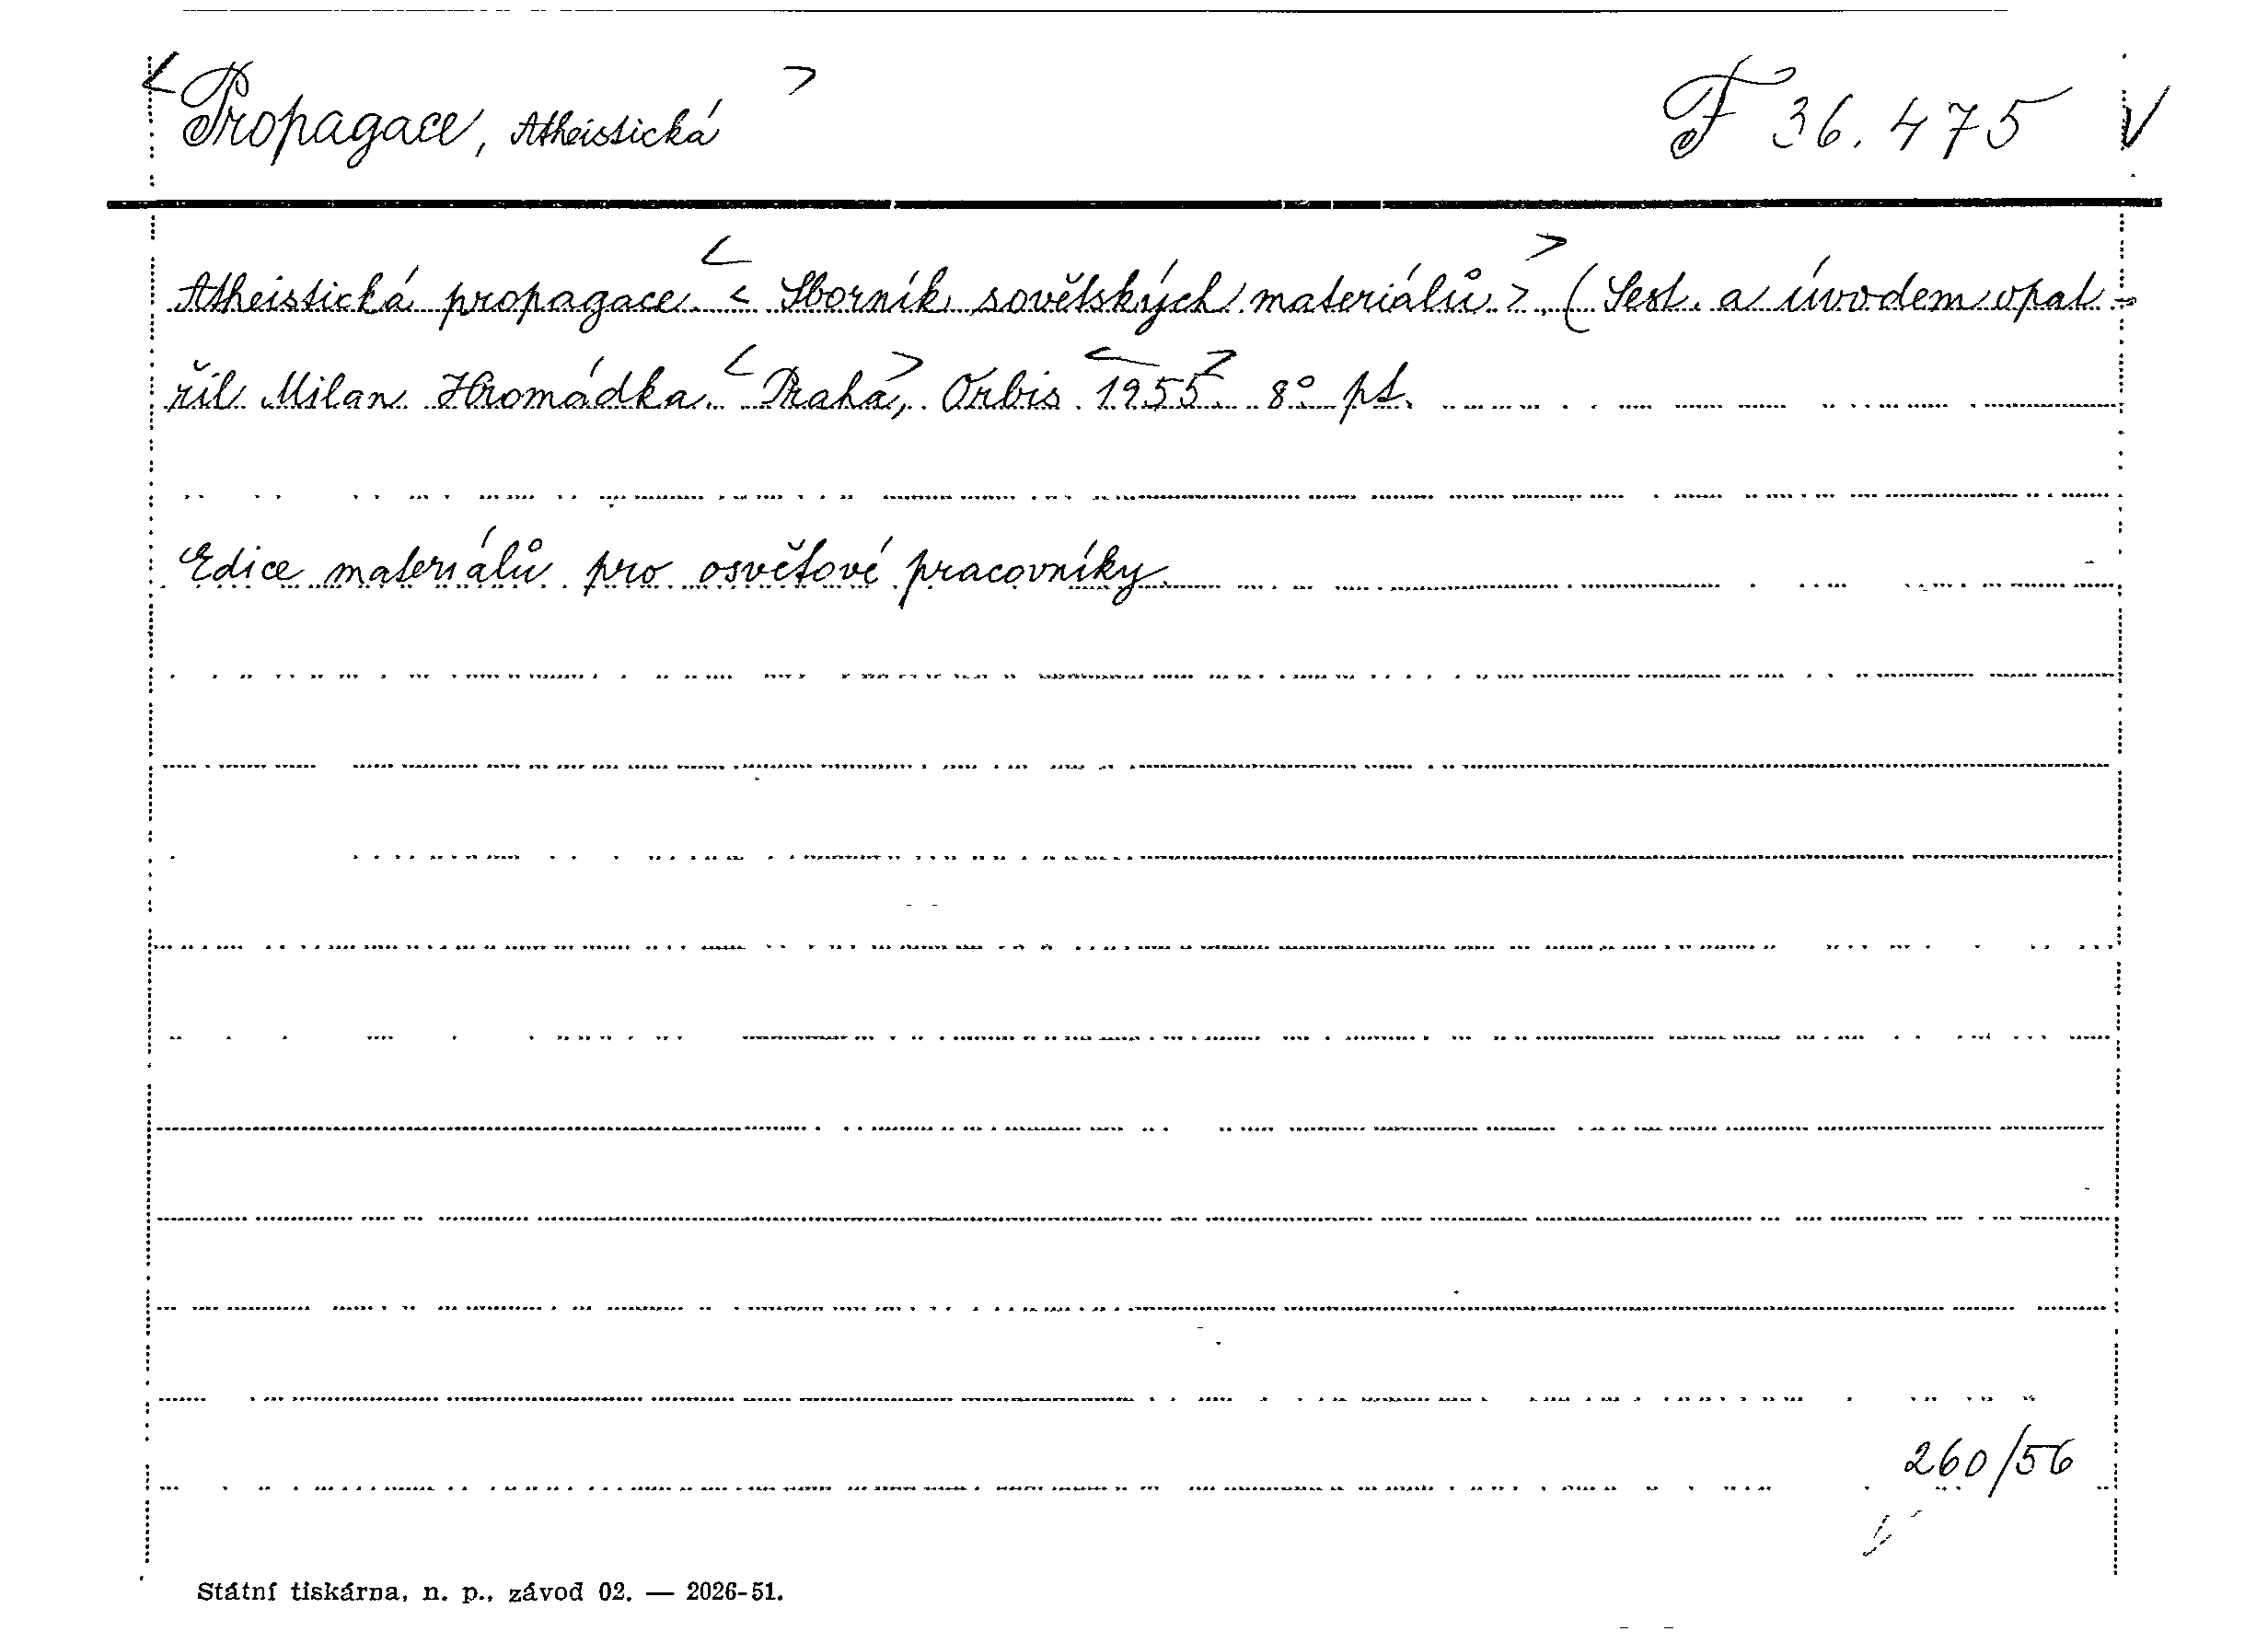 <Propagace, Atheistická> F 36.475 V
Atheistická propagace. < Sborník sovětských materiálů. > (Sest. a úvodem opat-
řil Milan Hromádka. <Praha>, Orbis <1955>. 8° pt.
Edice materiálů pro osvětové pracovníky.
260/56
Státní tiskárna, n. p., závod 02. — 2026-51.